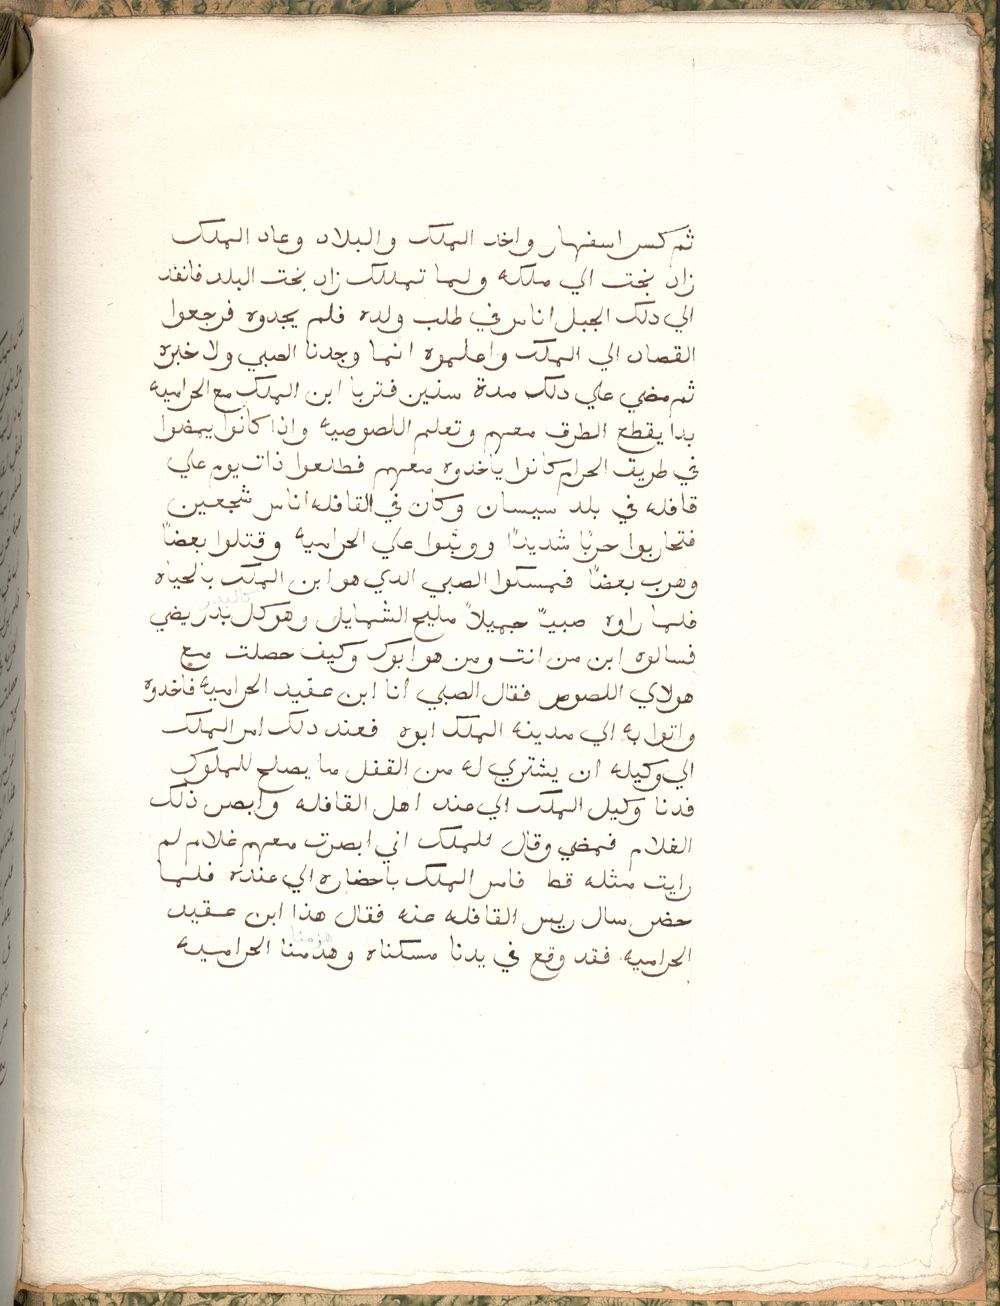 ثم كسر اسفنهار واخد الملك والبلاد وعاد الملك
زاد بخت الي ملكه ولما تملك زاد بخت البلد فانفد
الي دلك الجبل اناس في طلب ولده فلم يجدوه فرجعوا
القصاد الي الملك واعلموه انما وجدنا الصبي ولا خبره
ثم مضي علي دلك مدة سنين فتربا ابن الملك مع الحراميه
بدا يقطع الطرق معهم وتعلم اللصوصيه واذا كانوا يمضوا
في طريق الحرام كانوا ياخدوه معهم فطلعوا ذات يوم علي
قافله في بلد سيسان وكان في القافله اناس شجعين
فتحاربوا حربًا شديدًا ووثبوا علي الحراميه وقتلوا بعضًا
وهرب بعضًا فمسكوا الصبي الدي هو ابن الملك بالحياه
كالبدر
فلما راوه صبيًا جميلاً مليح الشمايل وهو كل بدر يضي
فسالوه ابن من انت ومن هو ابوك وكيف حصلت مع
هولاي اللصوص فقال الصبي انا ابن عقيد الحراميه فاخدوه
واتوا به الي مدينه الملك ابوه فعند دلك امر الملك
الي وكيله ان يشتري له من القفل ما يصلح للملوك
فدنا وكيل الملك الي عند اهل القافله وابصر ذلك
الغلام فمضي وقال للملك اني ابصرت معهم غلام لم
رايت مثله قط فامر الملك باحضاره الي عنده فلما
حضر سال ريس القافله عنه فقال هذا ابن عقيد
هزمنا
الحراميه فقد وقع في يدنا مسكناه وهدمنا الحراميه